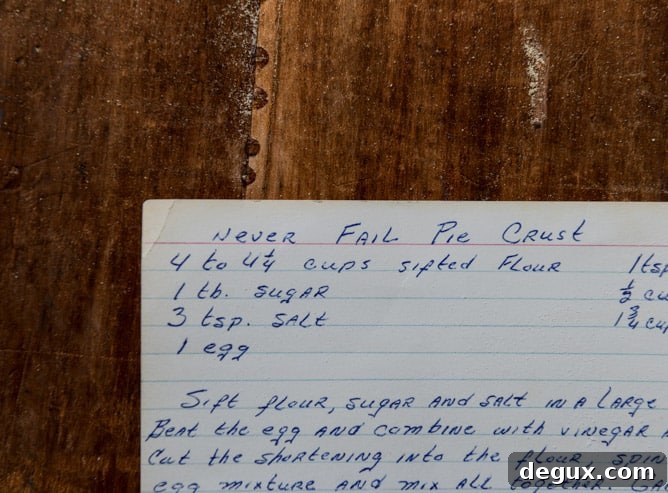 Never Fail Pie Crust
4 to 4¼ cups sifted Flour 1 tsp
1 tb. sugar ½ cu
3 tsp. salt 1¾ cup
1 egg
Sift flour, sugar and salt in a large
Beat the egg and combine with vinegar
Cut the shortening into the flour
egg mixture and mix all together.
degux.com